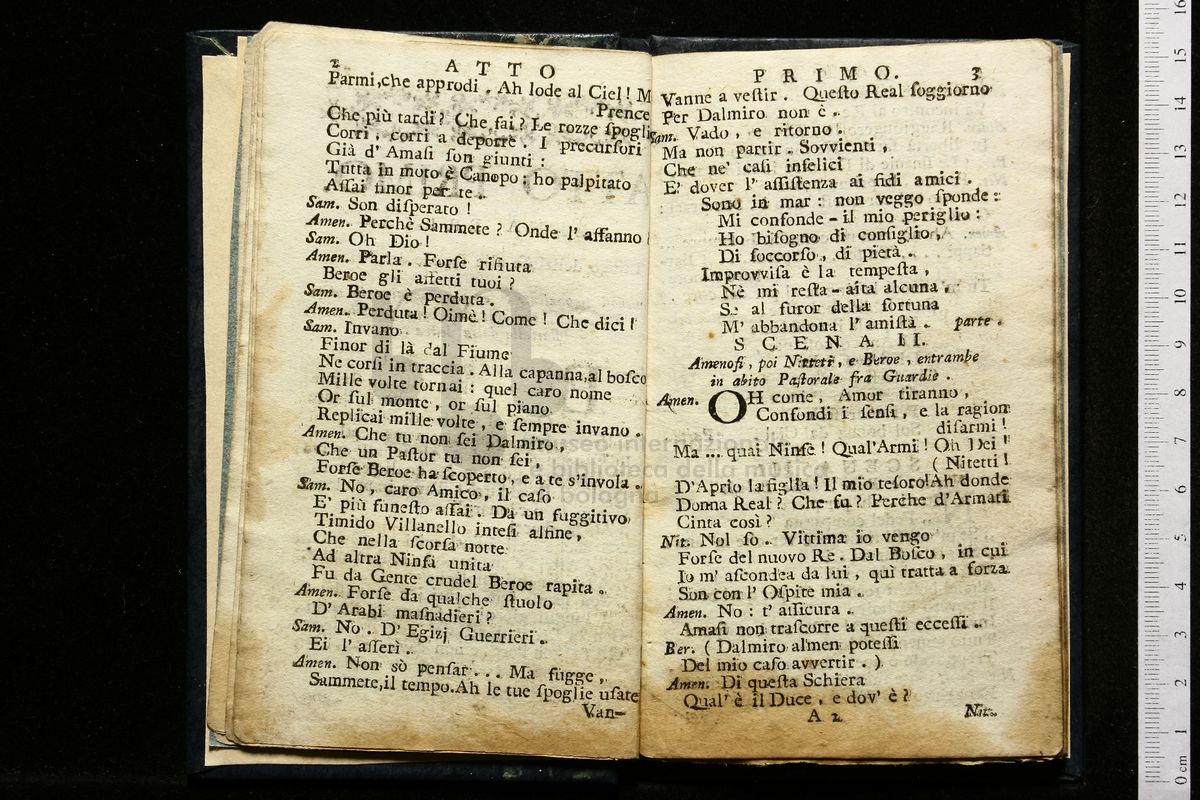 2 ATTO
Parmi,che approdi. Ah lode al Ciel! M
Prence
Che più tardi? Che fai? Le rozze ſpoglie
Corri, corri a deporre. I precurſori
Già d' Amaſi ſon giunti:
Tutta in moto è Canopo: ho palpitato
Aſſai finor per te.
Sam. Son diſperato!
Amen. Perchè Sammete? Onde l' affanno
Sam. Oh Dio!
Amen. Parla. Forſe rifiuta
Beroe gli affetti tuoi?
Sam. Beroe è perduta.
Amen. Perduta! Oimè! Come! Che dici!
Sam. Invano
Finor di là dal Fiume
Ne corſi in traccia. Alla capanna,al boſco
Mille volte tornai: quel caro nome
Or ſul monte, or ſul piano
Replicai mille volte, e ſempre invano.
Amen. Che tu non ſei Dalmiro,
Che un Paſtor tu non ſei,
Forſe Beroe ha ſcoperto, e a te s'invola.
Sam. No, caro Amico, il caſo
E' più funeſto aſſai. Da un fuggitivo
Timido Villanello inteſi alfine,
Che nella ſcorſa notte
Ad altra Ninfa unita
Fu da Gente crudel Beroe rapita.
Amen. Forſe da qualche ſtuolo
D' Arabi maſnadieri?
Sam. No. D' Egizj Guerrieri.
Ei l' aſſerì.
Amen. Non sò penſar... Ma fugge,
Sammete,il tempo.Ah le tue ſpoglie uſate
Van-
PRIMO. 3
Vanne a veſtir. Queſto Real ſoggiorno
Per Dalmiro non è.
Sam. Vado, e ritorno.
Ma non partir. Sovvienti,
Che ne' caſi infelici
E' dover l' aſſiſtenza ai fidi amici.
Sono in mar: non veggo ſponde:
Mi confonde - il mio periglio:
Ho biſogno di conſiglio,
Di ſoccorſo, di pietà.
Improvviſa è la tempeſta,
Nè mi reſta - aita alcuna,
Se al furor della fortuna
M' abbandona l' amiſtà. parte.
SCENA II.
Amenofi, poi Nitteti, e Beroe, entrambe
in abito Paſtorale fra Guardie.
Amen. OH come, Amor tiranno,
Confondi i ſenſi, e la ragion
diſarmi!
Ma ... quai Ninfe! Qual'Armi! Oh Dei!
( Nitetti!
D'Aprio la figlia! Il mio teſoro!Ah donde
Donna Real? Che fu? Perchè d'Armati
Cinta così?
Nit. Nol ſo. Vittima io vengo
Forſe del nuovo Re. Dal Boſco, in cui
Io m' aſcondea da lui, quì tratta a forza
Son con l' Oſpite mia.
Amen. No: t' aſſicura.
Amaſi non traſcorre a queſti ecceſſi.
Ber. ( Dalmiro almen poteſſi
Del mio caſo avvertir. )
Amen. Di queſta Schiera
Qual' è il Duce, e dov' è?
A 2 Nit.
museo internazionale
biblioteca della musica
bologna
0 cm 1 2 3 4 5 6 7 8 9 10 11 12 13 14 15 16